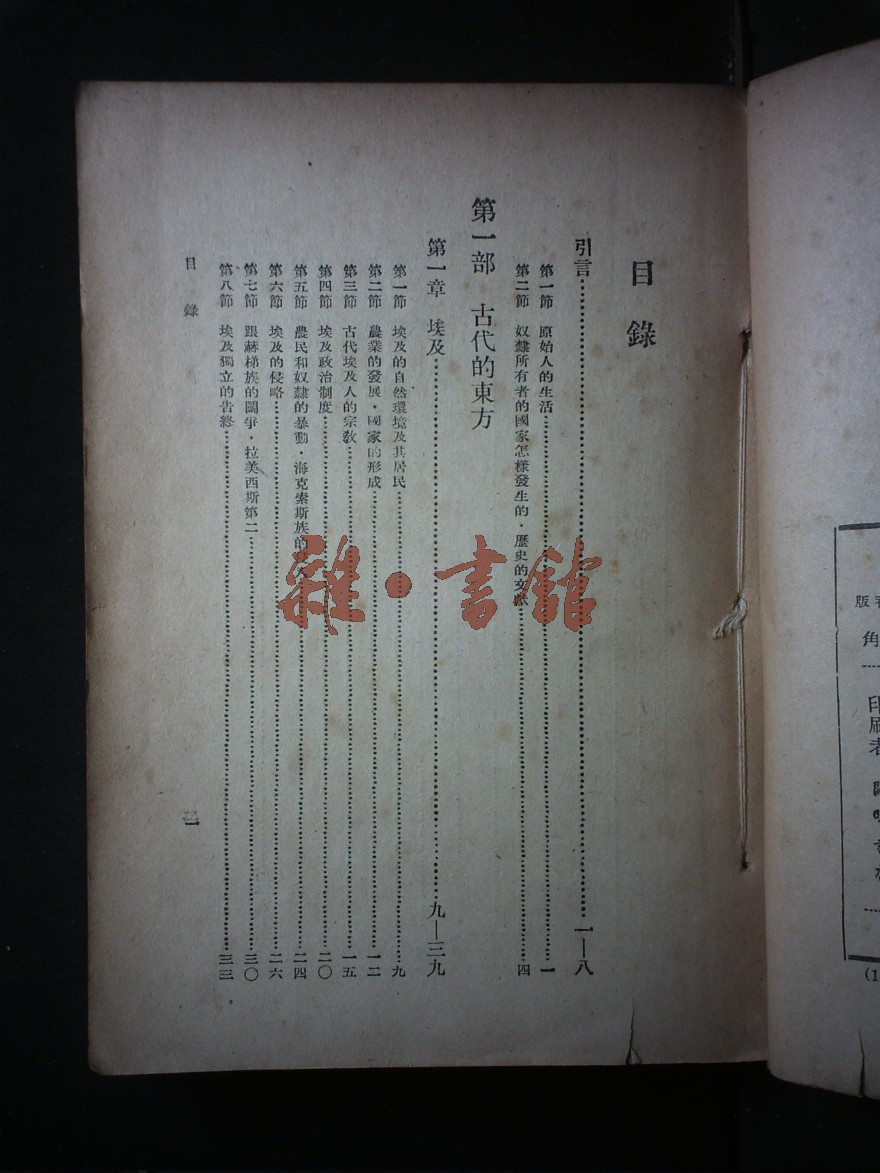 目錄
引言……一—八
第一節 原始人的生活……一
第二節 奴隸所有者的國家怎樣發生的・歷史的文獻……四
第一部 古代的東方
第一章 埃及……九—三九
第一節 埃及的自然環境及其居民……九
第二節 農業的發展・國家的形成……一二
第三節 古代埃及人的宗教……一五
第四節 埃及政治制度……二〇
第五節 農民和奴隸的暴動・海克索斯族的……二四
第六節 埃及的侵略……二六
第七節 跟赫梯族的鬭爭・拉美西斯第二……三〇
第八節 埃及獨立的告終……三三
目錄
一
雜・書館
版
角
印刷者
(1